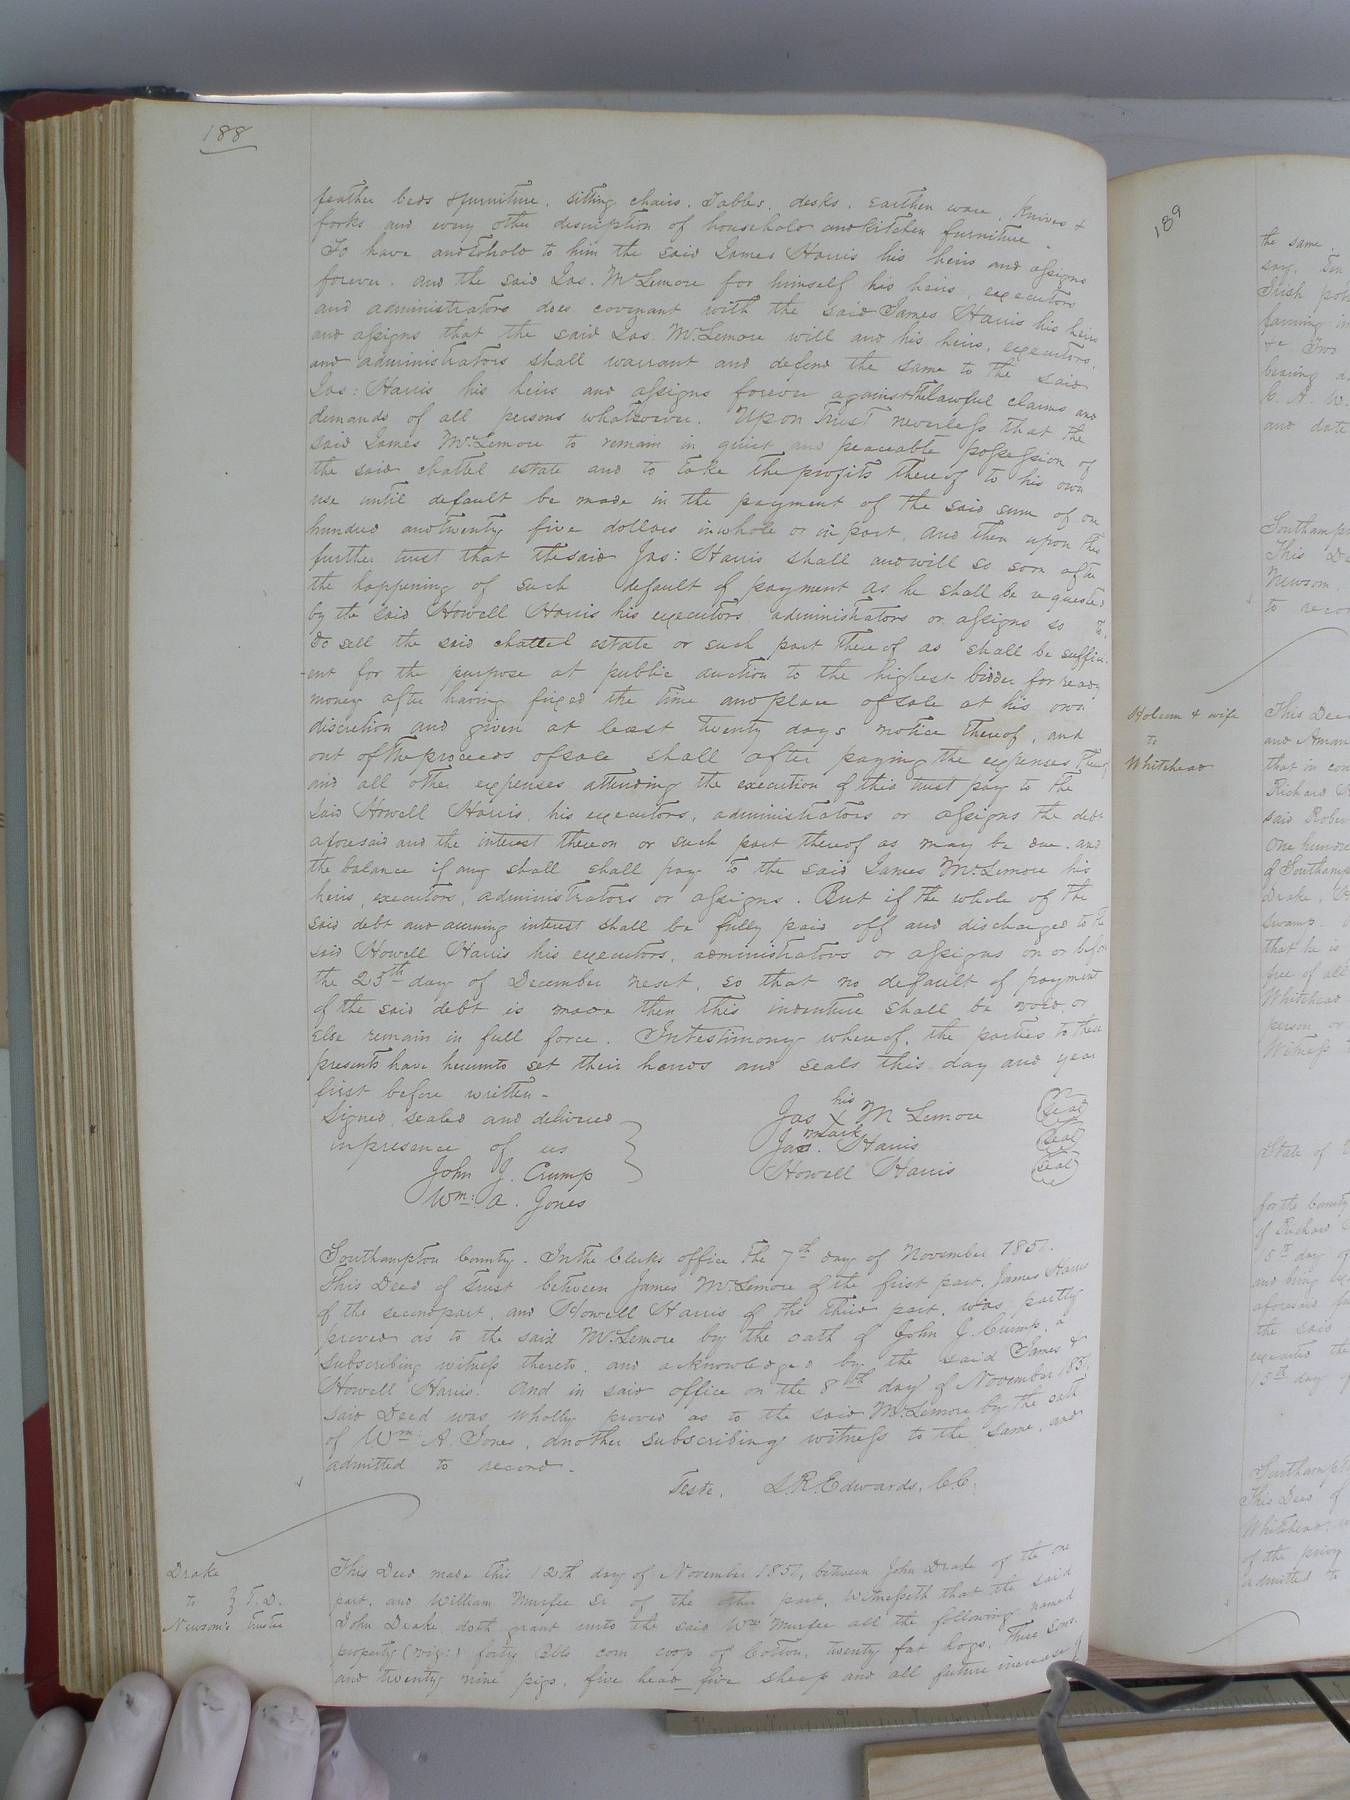 188
feather beds & furniture, sitting chairs, Tables, desks, Earthen ware, Knives &
forks and every other description of household and Kitchen furniture.
To have and to hold to him the said James Harris his heirs and assigns
forever. and the said Jas. McLemore for himself his heirs, executors
and administrators does covenant with the said James Harris his heirs
and assigns that the said Jas. McLemore will and his heirs, executors,
and administrators shall warrant and defend the same to the said
Jas: Harris his heirs and assigns forever against the lawful claims and
demands of all persons whatsoever. Upon Trust neverless that the
said James McLemore to remain in quiet and peaceable possession of
the said chattel estate and to take the profits thereof to his own
use until default be made in the payment of the said sum of one
hundred and twenty five dollars in whole or in part, and then upon this
further trust that the said Jas: Harris shall and will so soon after
the happening of such default of payment as he shall be requested
by the said Howell Harris his executors administrators or assigns so to,
do sell the said chattel estate or such part thereof as shall be suffici-
-ent for the purpose at public auction to the highest bidder for ready
money after having fixed the time and place of sale at his own
discretion and given at least twenty days notice thereof, and
out of the proceeds of sale shall after paying the expenses thereof
and all other expenses attending the execution of this trust pay to the
said Howell Harris, his executors, administrators or assigns the debt
aforesaid and the interest thereon or such part thereof as may be due. and
the balance if any shall shall pay to the said James McLemore his
heirs, executors, administrators or assigns. But if the whole of the
said debt and accruing interest shall be fully paid off and discharged to the
said Howell Harris his executors, administrators or assigns on or before
the 25th day of December next, so that no default of payment
of the said debt is made then this indenture shall be void or
Else remain in full force. In testimony whereof, the parties to these
presents have hereunto set their hands and seals this day and year
first before written.
Signed, sealed and delivered
in presence of us
John J. Crump
Wm: A. Jones
his
Jas X McLemore Seal
mark
Jas. Harris Seal
Howell Harris Seal
Southampton County. In the Clerks office the 7th day of November 1851.
This Deed of Trust between James McLemore of the first part, James Harris
of the second part, and Howell Harris of the third part, was partly
proved as to the said McLemore by the oath of John J. Crump, a
subscribing witness thereto, and acknowledged by the said James &
Howell Harris. And in said office on the 8th day of November 1851
said Deed was wholly proved as to the said McLemore by the oath
of Wm A. Jones, another subscribing witness to the same, and
admitted to record.
Teste, L.R. Edwards, C.C.
Drake
to } T.D.
Newsom's Trustee
This Deed made this 12th day of November 1851, between John Drake of the one
part, and William Murfee Sr of the other part, Witnesseth that the said
John Drake doth grant unto the said Wm Murfee all the following named
property (viz:) forty Bbls corn crop of Cotton, twenty fat hogs, Three sows
and twenty nine pigs, five head five sheep and all future increase of
189
the same.
say.
Irish
farming
bearing
and date
Southamp
This De
Newsom
to recor
Holcum & wife
to
Whitehead
This Deed
and Aman
that in con
Richard
said Rober
One hundre
of Southamp
Drake,
swamp.
that he is
free of all
Whitehead
person or
Witness
State of
for the County
of Richard
15th day of
and being
aforesaid
the said
executed the
15th day of
Southampt
This Deed of
Whitehead
of the privy
admitted to